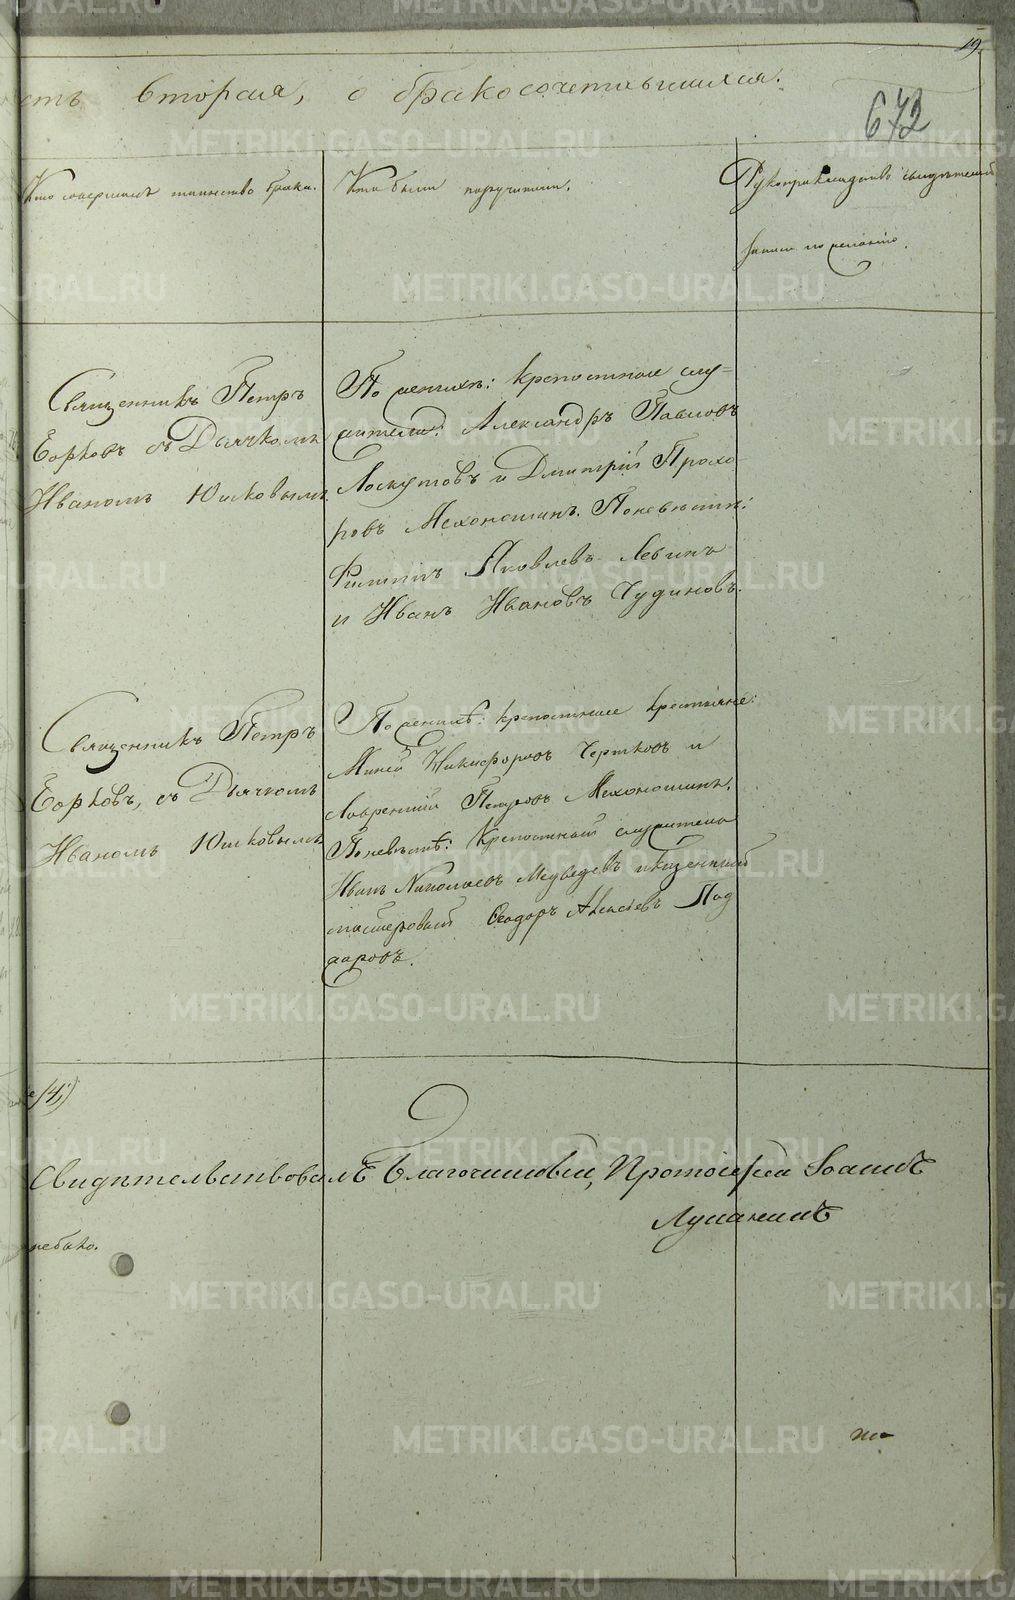 19.
сть вторая, о бракосочетавшихся.
672
Кто совершалъ таинство брака.
Кто были поручители.
Рукоприкладство свидѣтелей
записи по желанію.
Священникъ Петръ
Ѣ съ Дьячкомъ
Иваномъ Юшковымъ
По женихѣ: крепостные слу=
жители: Александръ Павловъ
Лоскутовъ и Дмитрій Прохо
ровъ Мехоношинъ. По невѣстѣ:
Филиппъ Яковлевъ Левинъ
и Иванъ Ивановъ Чудиновъ.
Священникъ Петръ
съ Дьячкомъ
Иваномъ Юшковымъ
По женихѣ: крепостные крестьяне:
Миней Никифоровъ Чертковъ и
Лаврентій Петровъ Мехоношинъ.
По невѣстѣ: Крепостный служитель
Иванъ Николаевъ Медведевъ и казенный
мастеровый Ѳеодоръ Алексѣевъ Под
аровъ.
Свидѣтельствовалъ Благочинный, Протоіерей Іоаннъ
Луканинъ
METRIKI.GASO-URAL.RU